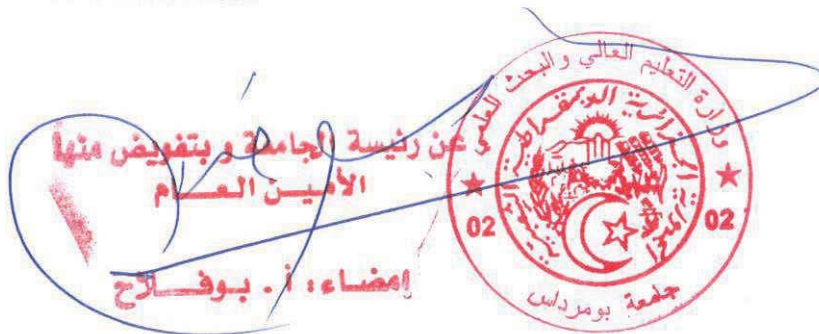 عن رئيسة الجامعة و بتفويض منها
الأمين العـــام
إمضاء : أ . بـوفـــلاح
وزارة التعليم العالي و البحث العلمي
الجزائرية الديمقراطية
02
02
جامعة بومرداس